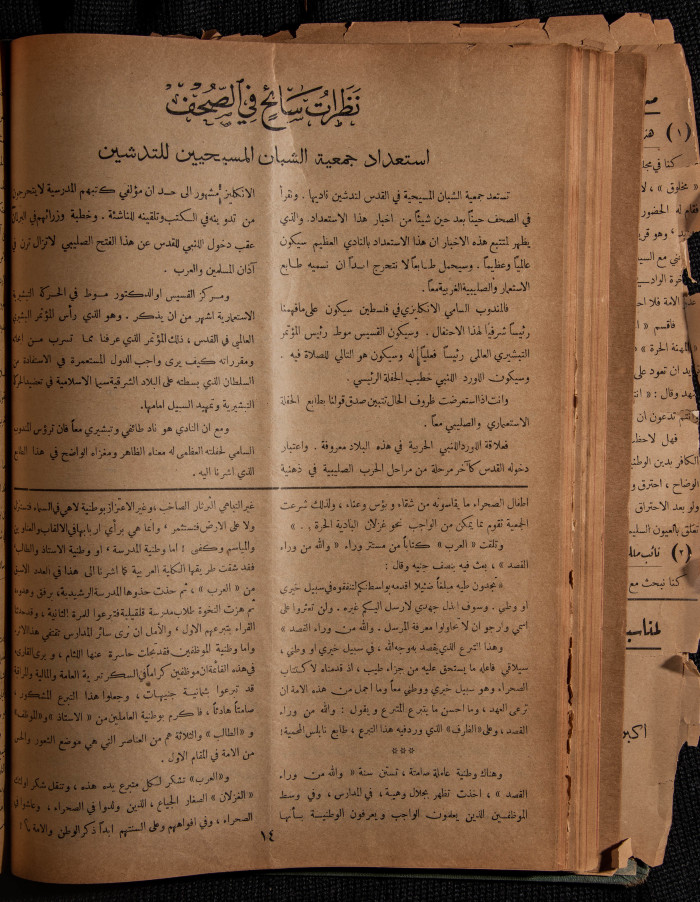 نظرات سائح في الصحف
استعداد جمعية الشبان المسيحيين للتدشين
تستعد جمعية الشبان المسيحية في القدس لتدشين ناديها . ونقرأ
في الصحف حيناً بعد حين شيئاً من اخبار هذا الاستعداد . والذي
يظهر لمتتبع هذه الاخبار ان هذا الاستعداد بالنادي العظيم سيكون
عالمياً وعظيماً . وسيحمل طابعاً لا نتحرج ابداً ان نسميه طابع
الاستعمار والصليبية الغربية معاً .
فالمندوب السامي الانكليزي في فلسطين سيكون على ما فهمنا
رئيساً شرفياً لهذا الاحتفال . وسيكون القسيس موط رئيس المؤتمر
التبشيري العالمي رئيساً فعلياً له وسيكون هو التالي للصلاة فيه .
وسيكون اللورد اللنبي خطيب الحفلة الرئيسي .
وانت اذا استعرضت ظروف الحال تتبين صدق قولنا بطابع الحفلة
الاستعماري والصليبي معاً .
فعلاقة اللورد اللنبي الحربية في هذه البلاد معروفة . واعتبار
دخوله القدس كآخر مرحلة من مراحل الحرب الصليبية في ذهنية
الانكليز مشهور الى حد ان مؤلفي كتبهم المدرسية لا يتحرجون
من تدوينه في الكتب وتلقينه للناشئة . وخطبة وزرائهم في البرلمان
عقب دخول اللنبي للقدس عن هذا الفتح الصليبي لا تزال ترن في
آذان المسلمين والعرب .
ومركز القسيس او الدكتور موط في الحركة التبشيرية
الاستعمارية اشهر من ان يذكر . وهو الذي رأس المؤتمر التبشيري
العالمي في القدس ، ذلك المؤتمر الذي عرفنا مما تسرب من
ومقرراته كيف يرى واجب الدول المستعمرة في الاستفادة من
السلطان الذي بسطته على البلاد الشرقية سيما الاسلامية في تعضيد الحركة
التبشيرية وتمهيد السبيل امامها .
ومع ان النادي هو ناد طائفي وتبشيري معاً فان ترؤس المندوب
السامي لحفلته العظمى له معناه الظاهر ومغزاه الواضح في هذا الطابع
الذي اشرنا اليه .
اطفال الصحراء ما يقاسونه من شقاء وبؤس وعناء ، ولذلك شرعت
الجمعية تقوم بما يمكن من الواجب نحو غزلان البادية الحرة . . »
وتلقت « العرب » كتاباً من مستتر وراء « والله من وراء
القصد » ، بعث فيه بنصف جنيه وقال :
« تجدون طيه مبلغاً ضئيلا اقدمه بواسطتكم لتنفقوه في سبيل خيري
او وطني . وسوف ابذل جهدي لارسل اليكم غيره . ولن تعثروا على
اسمي وارجو ان لا تحاولوا معرفة المرسل . والله من وراء القصد »
وهذا التبرع الذي يقصد به وجه الله ، في سبيل خيري او وطني ،
سيلاقي فاعله ما يستحق عليه من جزاء طيب ، اذ قدمناه لاكتتاب
الصحراء وهو سبيل خيري ووطني معاً وما اجمل من هذه الامة ان
ترعى العهد ، وما احسن ما يتبرع المتبرع ويقول : والله من وراء
القصد ، وعلى « الظرف » الذي ورد فيه هذا التبرع ، طابع نابلس المحمية !
***
وهناك وطنية عاملة صامتة ، تستن سنة « والله من وراء
القصد » ، اخذت تظهر بجلال وهيبة ، في المدارس ، وفي وسط
الموظفين الذين يعلمون الواجب ويعرفون الوطنية بسأنها
غير التباهي الثرثار الصاخب ، وغير الاعتزاز بوطنية لا هي في السماء فتستنزل
ولا على الارض فتستثمر ، وانما هي برأي اربابها في الالقاب والعناوين
والمباسم وكفى ! اما وطنية المدرسة ، او وطنية الاستاذ والطالب
فقد شقت طريقها الكلية العربية كما اشرنا الى هذا في العدد الاسبق
من « العرب » ، ثم حذت حذوها المدرسة الرشيدية ، برفق وهدوء
ثم هزت النخوة طلاب مدرسة قلقيلية فتبرعوا للمرة الثانية ، وقد
القراء بتبرعهم الاول ، والأمل ان نرى سائر المدارس تقتفي هذا الاثر .
واما وطنية الموظفين فقد تجلت حاسرة عنها اللثام ، ويرى القارىء
في هذه القائمة ان موظفين كراماً في السكرتيرية العامة والمالية والمراقبة
قد تبرعوا بثمانية جنيهات ، وجعلوا هذا التبرع المشكور ،
صامتاً هادئاً ، فاكرم بوطنية العاملين من « الاستاذ » و « الموظف »
و « الطالب » والثلاثة هم من العناصر التي هي موضع الشعور والحس
من الامة في المقام الاول .
و « العرب » تشكر لكل متبرع يده هذه ، وتنقل شكر اولئك
« الغزلان » الصغار الجياع ، الذين ولدوا في الصحراء ، وعاشوا في
الصحراء ، وفي افواههم وعلى السنتهم ابداً ذكر الوطن والامة
١٤
(١)
(٢) نائب
كنا نبحث مع